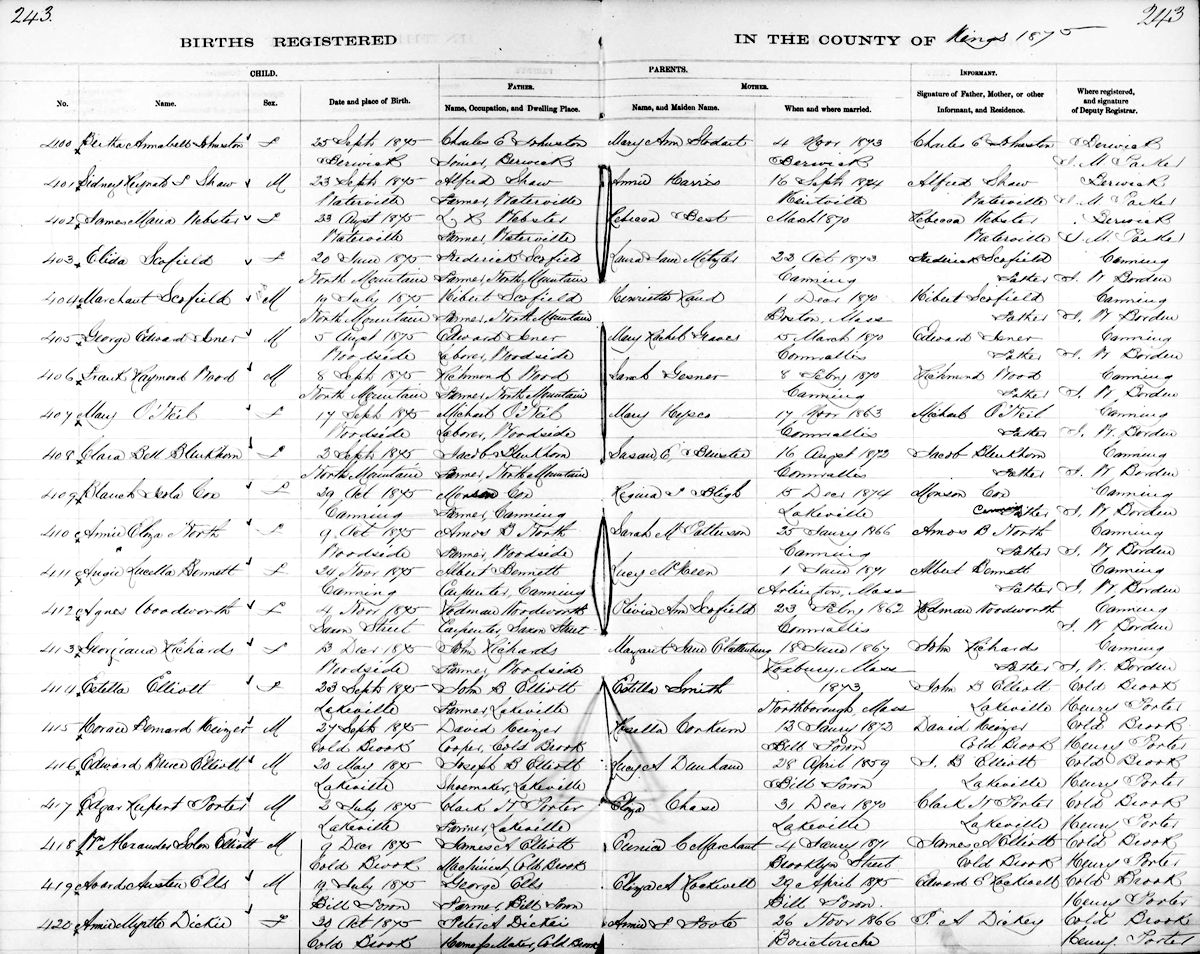 243.
243
BIRTHS REGISTERED IN THE COUNTY OF Kings 1875
CHILD. PARENTS. INFORMANT.
FATHER. MOTHER.
No. Name. Sex. Date and place of Birth. Name, Occupation, and Dwelling Place. Name, and Maiden Name. When and where married. Signature of Father, Mother, or other Informant, and Residence. Where registered, and signature of Deputy Registrar.
400 Bertha Annabell Johnston F 25 Sept 1875 Charles E Johnston Mary Ann Stodart 4 Novr 1873 Charles E Johnston Berwick
Berwick Joiner, Berwick Berwick S. M. Parker
401 Sidney Reginald S Shaw M 23 Sept 1875 Alfred Shaw Annie Harris 16 Sept 1874 Alfred Shaw Berwick
Waterville Farmer, Waterville Kentville Waterville S. M. Parker
402 James Maria Webster F 23 Augt 1875 Webster Rebecca Best March 1870 Rebecca Webster Berwick
Waterville Farmer, Waterville Waterville S. M. Parker
403 Elida Scofield F 20 June 1875 Frederick Scofield Laura Jane 22 Oct 1873 Frederick Scofield Canning
North Mountain Farmer, North Mountain Canning Father J. W. Borden
404 Marchant Scofield M 19 July 1875 Hibert Scofield Henrietta Rand 1 Decr 1870 Hibert Scofield Canning
North Mountain Farmer, North Mountain Boston, Mass Father J. W. Borden
405 George Edward Isner M 5 Augt 1875 Edward Isner Mary Rachel Graves 5 March 1870 Edward Isner Canning
Woodside Laborer, Woodside Cornwallis Father J. W. Borden
406 Frank Raymond Wood M 8 Sept 1875 Richmond Wood Sarah Gesner 8 Feby 1870 Richmond Wood Canning
North Mountain Farmer, North Mountain Canning Father J. W. Borden
407 Mary O'Neil F 17 Sept 1875 Michael O'Neil Mary 17 Novr 1863 Michael O'Neil Canning
Woodside Laborer, Woodside Cornwallis Father J. W. Borden
408 Clara Bell Blenkhorn F 2 Sept 1875 Jacob Blenkhorn Susan E. 16 Augt 1872 Jacob Blenkhorn Canning
North Mountain Farmer, North Mountain Cornwallis Father J. W. Borden
409 Blanch Isola Cox F 29 Oct 1875 Monson Cox Regina S Bligh 15 Decr 1874 Monson Cox Canning
Canning Farmer, Canning Lakeville Father J. W. Borden
410 Annie Eloza North F 9 Oct 1875 Amos B North Sarah M Patterson 25 Jany 1866 Amos B North Canning
Woodside Farmer, Woodside Canning Father J. W. Borden
411 Angie Lucella Bennett F 24 Novr 1875 Albert Bennett Lucy McKeen 1 June 1871 Albert Bennett Canning
Canning Carpenter, Canning Arlington, Mass Father J. W. Borden
412 Agnes Woodworth F 4 Novr 1875 Rodman Woodworth Olivia Ann Scofield 23 Feby 1862 Rodman Woodworth Canning
Saxon Street Carpenter, Saxon Street Cornwallis J. W. Borden
413 Georgiana Richards F 13 Decr 1875 John Richards Margaret Jane Chattenburg 18 June 1867 John Richards Canning
Woodside Farmer, Woodside Roxbury, Mass Father J. W. Borden
414 Estella Elliott F 23 Sept 1875 John B Elliott Estella Smith 1873 John B Elliott Cold Brook
Lakeville Farmer, Lakeville Northborough, Mass Lakeville Henry Porter
415 Horace Bernard Keizer M 27 Sept 1875 David Keizer Rosella Corkum 13 Jany 1873 David Keizer Cold Brook
Cold Brook Cooper, Cold Brook Bill Town Cold Brook Henry Porter
416 Edward Bruce Elliott M 20 May 1875 Joseph B Elliott Lucy A Dunham 28 April 1859 J. B Elliott Cold Brook
Lakeville Shoemaker, Lakeville Bill Town Lakeville Henry Porter
417 Edgar Rupert Porter M 2 July 1875 Clark N Porter Eloza Chase 31 Decr 1870 Clark N Porter Cold Brook
Lakeville Farmer, Lakeville Lakeville Lakeville Henry Porter
418 Wm Solon Elliott M 9 Decr 1875 James A Elliott Eunice C Marchant 4 Jany 1871 James A Elliott Cold Brook
Cold Brook Machinist, Cold Brook Brooklyn Street Cold Brook Henry Porter
419 Avard Austen Ells M 19 July 1875 George Ells Eloza A Rockwell 29 April 1875 Edward E Rockwell Cold Brook
Bill Town Farmer, Bill Town Bill Town. Henry Porter
420 Annie Myrtle Dickie F 20 Oct 1875 Peter A Dickie Annie S Foote 26 Novr 1866 P. A Dickey Cold Brook
Cold Brook Harness Maker, Cold Brook Bouctouche Henry Porter